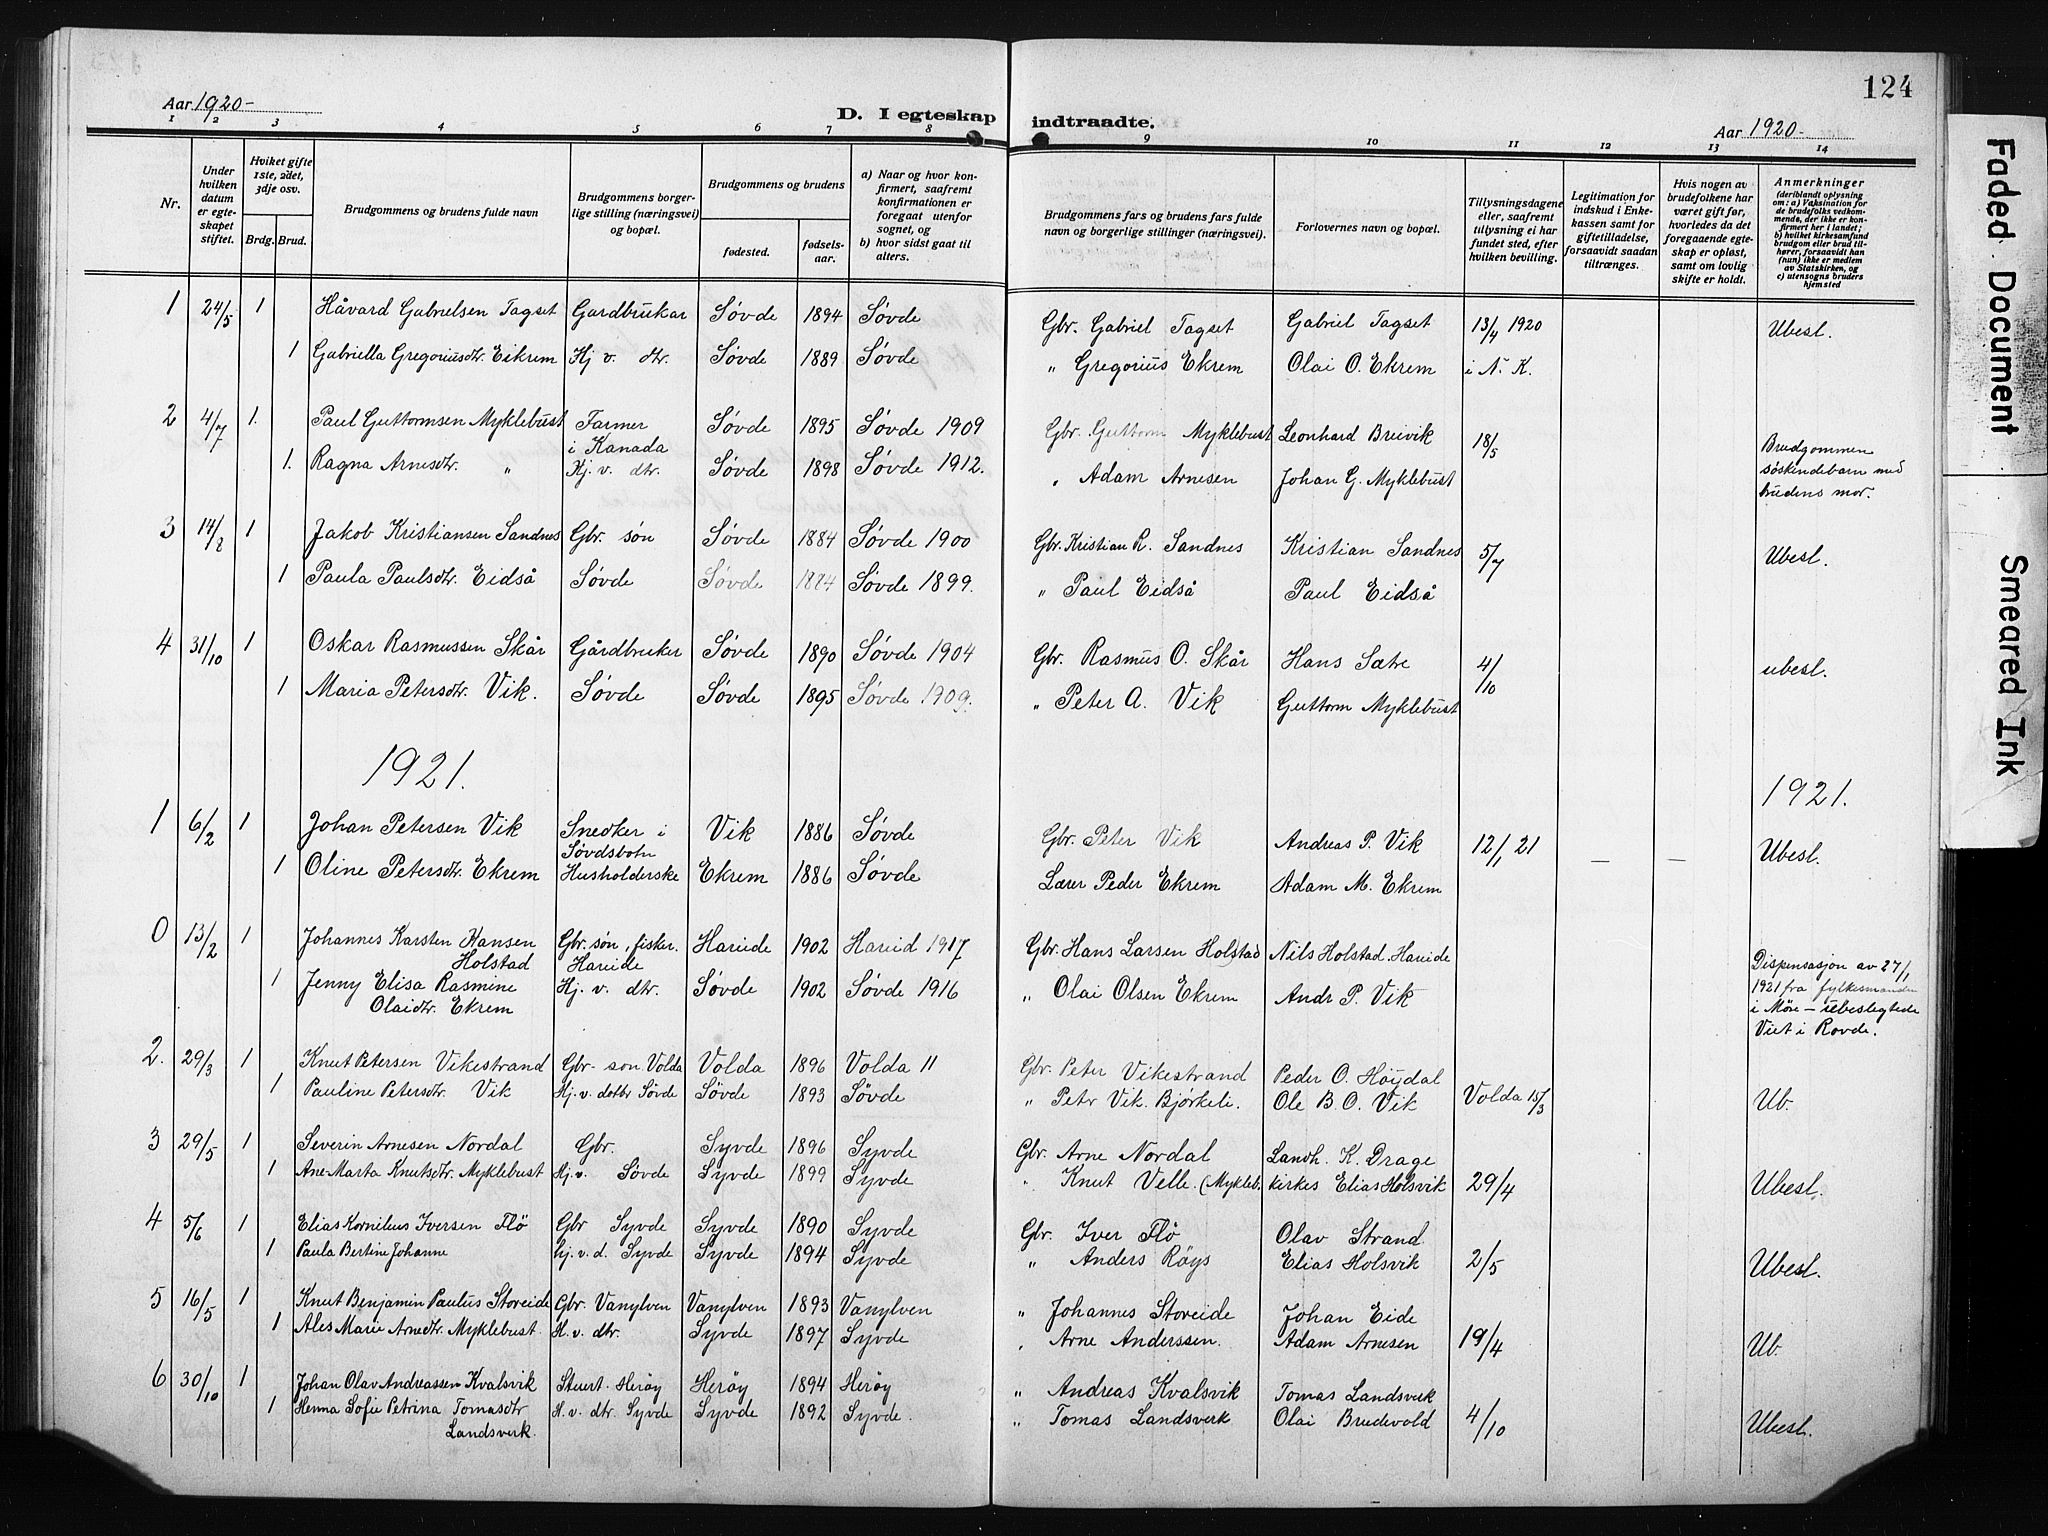 124
Aar 1920-
D. I egteskap indtraadte.
Aar 1920-
1 2 3 4 5 6 7 8 9 10 11 12 13 14
Nr.
Under hvilken datum er egteskapet stiftet.
Hviket gifte 1ste, 2det, 3dje osv.
Brdg. Brud.
Brudgommens og brudens fulde navn
Brudgommens borgerlige stilling (næringsvei) og bopæl.
Brudgommens og brudens
fødested.
fødselsaar.
a) Naar og hvor konfirmert, saafremt konfirmationen er foregaat utenfor sognet, og
b) hvor sidst gaat til alters.
Brudgommens fars og brudens fars fulde navn og borgerlige stillinger (næringsvei).
Forlovernes navn og bopæl.
Tillysningsdagene eller, saafremt tillysning ei har fundet sted, efter hvilken bevilling.
Legitimation for indskud i Enkekassen samt for giftetilladelse, forsaavidt saadan tiltrænges.
Hvis nogen av brudefolkene har været gift før, hvorledes da det foregaaende egteskap er opløst, samt om lovlig skifte er holdt.
Anmerkninger
(deriblandt oplysning om: a) Vaksination for de brudefolks vedkommende, der ikke er konfirmert her i landet; b) hvilket kirkesamfund brudgom eller brud tilhører, forsaavidt han (hun) ikke er medlem av Statskirken, og c) utensogns bruders hjemsted
1 24/5 1 Håvard Gabrielsen Tagset Gardbrukar Søvde 1894 Søvde Gbr. Gabriel Tagset Gabriel Tagset 13/4 1920 Ubesl.
1 Gabriella Gregoriusdtr. Eikrem Hj v. dtr. Søvde 1889 Søvde " Gregorius Ekrem Olai O. Ekrem i N. K.
2 4/7 1. Paul Guttormsen Myklebust Farmer Søvde 1895 Søvde 1909 Gbr. Guttorm Myklebust Leonhard Breivik 18/5 Brudgommen
i Kanada
1. Ragna Arnesdtr. " Hj. v. dtr. Søvde 1898 Søvde 1912. " Adam Arnesen Johan G. Myklebust søskendebarn med
brudens mor.
3 14/8 1 Jakob Kristiansen Sandnes Gbr. søn Søvde 1884 Søvde 1900 Gbr. Kristian R. Sandnes Kristian Sandnes 5/7 Ubesl.
1 Paula Paulsdtr. Eidså Søvde Søvde 1884 Søvde 1899. " Paul Eidså Paul Eidså
4 31/10 1 Oskar Rasmussen Skår Gårdbruker Søvde 1890 Søvde 1904 Gbr. Rasmus O. Skår Hans Sætre 4/10 ubesl.
1 Maria Petersdtr. Vik. Søvde Søvde 1895 Søvde 1909. " Peter A. Vik Guttorm Myklebust
1921. 1921.
1 6/2 1 Johan Petersen Vik Snedker i Vik 1886 Søvde Gbr. Peter Vik Andreas P. Vik 12/1 21 — — Ubesl.
Søvdsbotn
1 Oline Petersdtr. Ekrem Husholderske Ekrem 1886 Søvde Lærer Peder Ekrem Adam M. Ekrem
0 13/2 1 Johannes Karsten Hansen Gbr. søn, fisker. Hareide 1902 Hareid 1917 Gbr. Hans Larsen Holstad Nils Holstad, Hareide
Holstad Hareide Dispensasjon av 27/1
1 Jenny Elisa Rasmine Hj. v. dtr. Søvde 1902 Søvde 1916 " Olai Olsen Ekrem Andr P. Vik 1921 fra fylkesmanden
Olaidtr. Ekrem i Møre — ubeslegtede
Viet i Rovde.
2. 29/3 1 Knut Petersen Vikestrand Gbr. søn Volda Volda 1896 Volda 11 Gbr. Peter Vikestrand Peder O. Høydal
1 Pauline Petersdtr. Vik Hj. v. dotbr Søvde Søvde 1893 Søvde " Petr Vik. Bjørkeli. Ole B. O. Vik Volda 15/3 Ub.
3 29/5 1 Severin Arnesen Nordal Gbr. Syvde 1896 Syvde Gbr. Arne Nordal Landh. K. Drage
1 Ane Marta Knutsdtr. Myklebust Hj. v. Søvde Syvde 1899 Syvde " Knut Velle. (Mykleb. kirkes Elias Holsvik 29/4 Ubesl.
4 5/6 1 Elias Kornelius Iversen Flö Gbr Syvde Syvde 1890 Syvde Gbr. Iver Flö Olav Strand
1 Paula Bertine Johanne hj. v. d. Syvde Syvde 1894 Syvde " Anders Röys Elias Holsvik 2/5 Ubesl.
5 16/5 1 Knut Benjamin Paulus Storeide Gbr. Vanylven Vanylven 1893 Vanylven " Johannes Storeide Johan Eide
1 Ales Marie Arnedtr. Myklebust. H. v. dtr. Syvde 1897 Syvde " Arne Anderssen. Adam Arnesen 19/4 Ub.
6 30/10 1 Johan Olav Andreassen Kvalsvik Stuert. Herøy Herøy 1894 Herøy " Andreas Kvalsvik Tomas Landsverk
1 Henna Sofie Petrina Tomasdtr H. v. dtr Syvde Syvde 1892 Syvde. " Tomas Landsverk Olai Brudevold 4/10 Ubesl.
Landsverk.
Faded Document
Smeared Ink